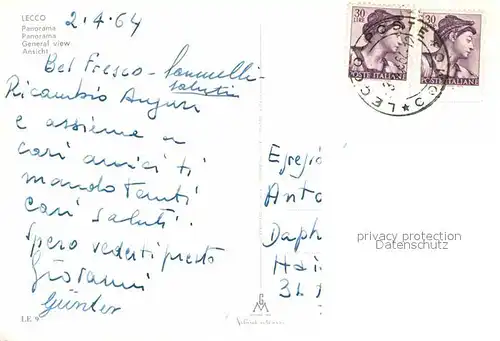 LECCO
Panorama
Panorama
General view
Ansicht
2.4.64
Bel Fresco -
saluti
Ricambio Auguri
e assieme a
cari amici ti
mando tanti
cari saluti.
Spero vederti presto
Giovanni
Günter
LE 9
30
LIRE
POSTE ITALIANE
30
POSTE ITALIANE
LECCO
Egregio
Anto
Daph
Hai
31
privacy protection
Datenschutz